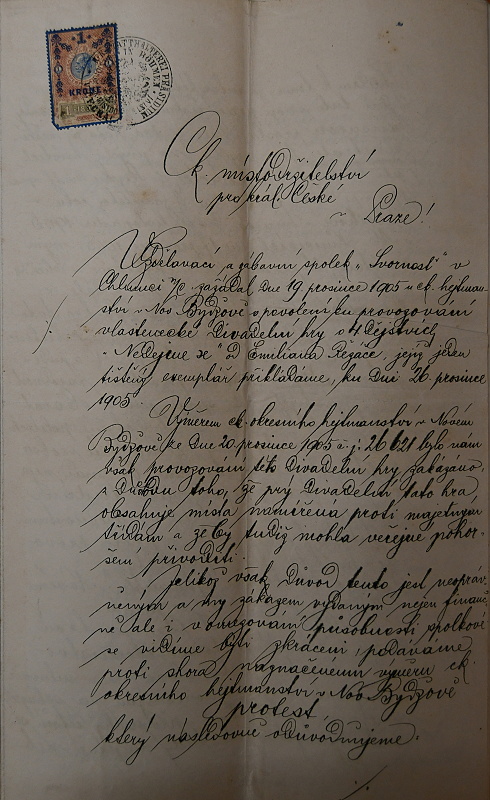 1
KRONE
STATTHALTEREI PRÄSIDIUM
Ck. místodržitelství
pro král. České
v Praze!
Vzdělavací a zábavní spolek „Svornost" v
Chlumci n/C zažádal dne 19 prosince 1905 u ck. hejtman-
ství v Nov. Bydžově o povolení ku provozování
vlastenecké divadelní hry o 4 dějstvích
„Nedejme se" od Emiliana Řezáče, jejíž jeden
tištěný exemplář přikládáme, ku dni 26. prosince
1905.
Výměrem ck. okresního hejtmanství v Novém
Bydžově ze dne 20 prosince 1905 č. j. 26621 bylo nám
však provozování této divadelní hry zakázáno,
z důvodu toho, že prý divadelní tato hra
obsahuje místa namířena proti majetným
třídám a že by tudíž mohla veřejné pohor-
šení přivoditi.
Jelikož však důvod tento jest neopráv-
něným a my zákazem vydaným nejen finanč-
ně ale i v omezování působnosti spolkové
se vidíme býti zkráceni, podáváme
proti shora naznačenému výměru ck.
okresního hejtmanství v Nov. Bydžově
protest,
který následovně odůvodňujeme.
./.